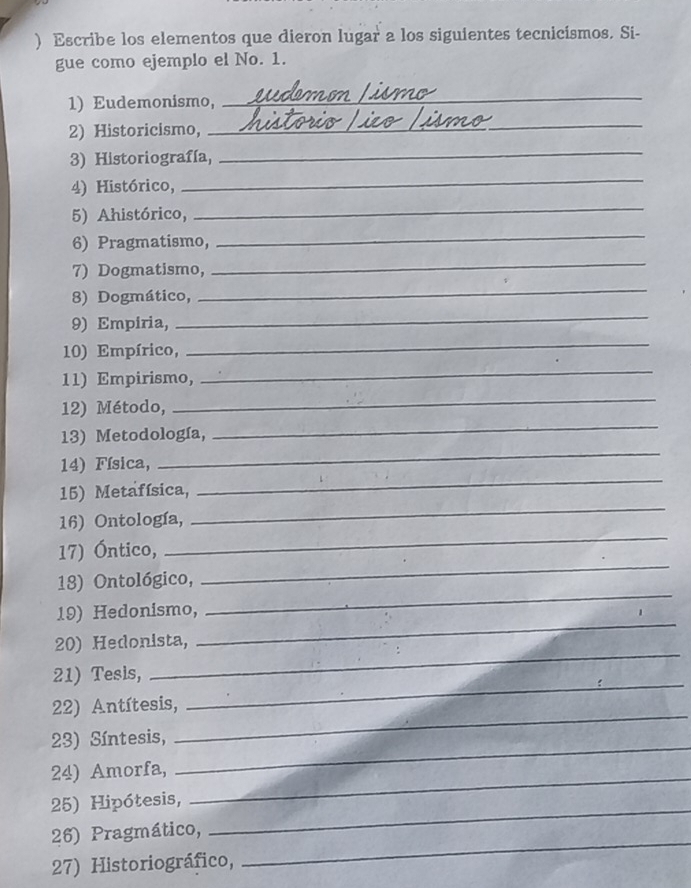 ) Escribe los elementos que dieron lugar a los siguientes tecnicismos. Si-
gue como ejemplo el No. 1.
1) Eudemonismo, eudemon / ismo
2) Historicismo, historio / ico / ismo
3) Historiografía,
4) Histórico,
5) Ahistórico,
6) Pragmatismo,
7) Dogmatismo,
8) Dogmático,
9) Empiria,
10) Empírico,
11) Empirismo,
12) Método,
13) Metodología,
14) Física,
15) Metafísica,
16) Ontología,
17) Óntico,
18) Ontológico,
19) Hedonismo,
20) Hedonista,
21) Tesis,
22) Antítesis,
23) Síntesis,
24) Amorfa,
25) Hipótesis,
26) Pragmático,
27) Historiográfico,